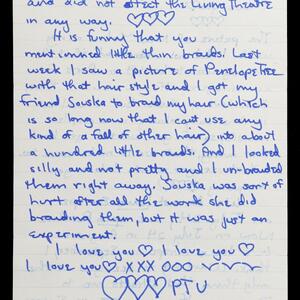 and did not affect the Living Theatre
in any way. ♡♡♡
It is funny that you
mentionned little thin braids. Last
week I saw a picture of Penelope Tree
with that hair style and I got my
friend Souska to braid my hair (which
is so long now that I cant use any
kind of a fall of other hair) into about
a hundred little braids. And I looked
silly and not pretty and I un-braided
them right away. Souska was sort of
hurt after all the work she did
braiding them, but it was just an
experiment.
I love you♡ I love you♡
I love you♡ XXX OOO
♡♡♡ PTU